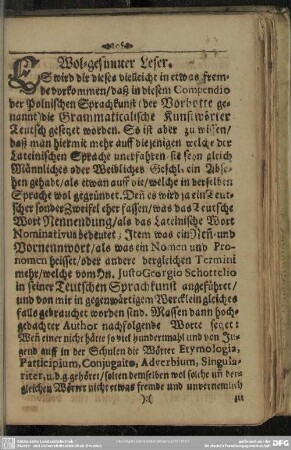 Wol-gesinnter Leser.
ES wird dir dieses vielleicht in etwas frem-
de vorkommen/ daß in diesem Compendio
der Polnischen Sprachkunst (der Vorbotte ge-
nannt) die Grammaticalische Kunstwörter
Teutsch gesetzet worden. So ist aber zu wissen/
daß man hiermit mehr auff die jenigen welche der
Lateinischen Sprache unerfahren/ sie seyn gleich
Männliches oder Weibliches Geschl. ein Abse-
hen gehabt/ als etwan auff die/ welche in derselben
Sprache wol gegründet. Deñ es wird ja ein Teut-
scher sonder Zweifel eher fassen/ was das Teutsche
Wort Nennendung/ als das Lateinische Wort
Nominativus bedeutet; Item was ein Neñ-und
Vornennwort/ als was ein Nomen und Pro-
nomen heisset/ oder andere dergleichen Termini
mehr/ welche vom Hn. Justo Georgio Schottelio
in seiner Teutschen Sprachkunst angeführet/
und von mir in gegenwärtigem Wercklein gleiches
falls gebrauchet worden sind. Massen dann hoch-
gedachter Author nachfolgende Worte setzet:
Weñ einer nicht hätte so viel hundertmahl und von Ju-
gend auff in der Schulen die Wörter Etymologia,
Participium, Conjugatio, Adverbium, Singula-
riter, u.d.g. gehöret/ solten demselben wol solche uñ der-
gleichen Wörter nicht etwas fremde und unvernemlich
):(
zu